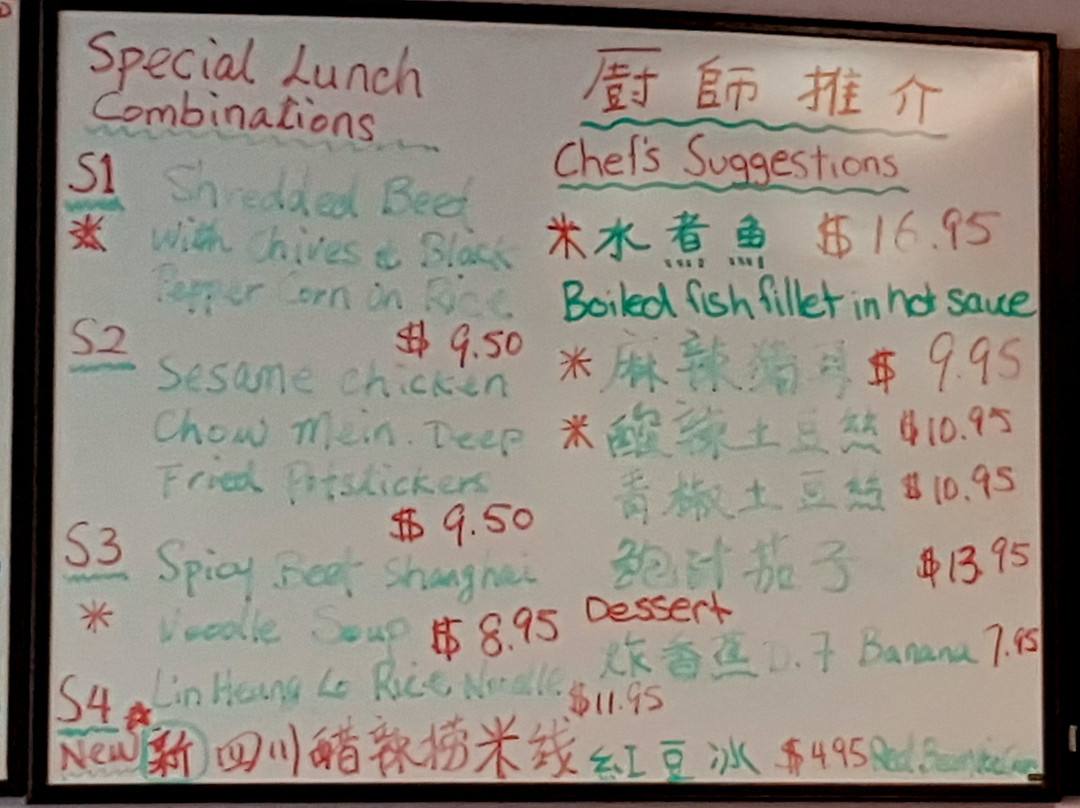 Special Lunch
Combinations
S1 Shredded Beef
with Chives & Black
Pepper Corn on Rice
$ 9.50
S2 Sesame chicken
Chow Mein. Deep
Fried Potstickers
$ 9.50
S3 Spicy Beef Shanghai
Noodle Soup $ 8.95
S4 Lin Heung Lo Rice Noodle $11.95
New 新 四川醋辣捞米线
廚師推介
Chef's Suggestions
水煮魚 $16.95
Boiled fish fillet in hot sauce
麻辣 $ 9.95
酸辣土豆絲 $10.95
青椒土豆絲 $10.95
鮑汁茄子 $13.95
Dessert
炸香蕉 D.7 Banana 7.95
紅豆冰 $4.95 Red Bean